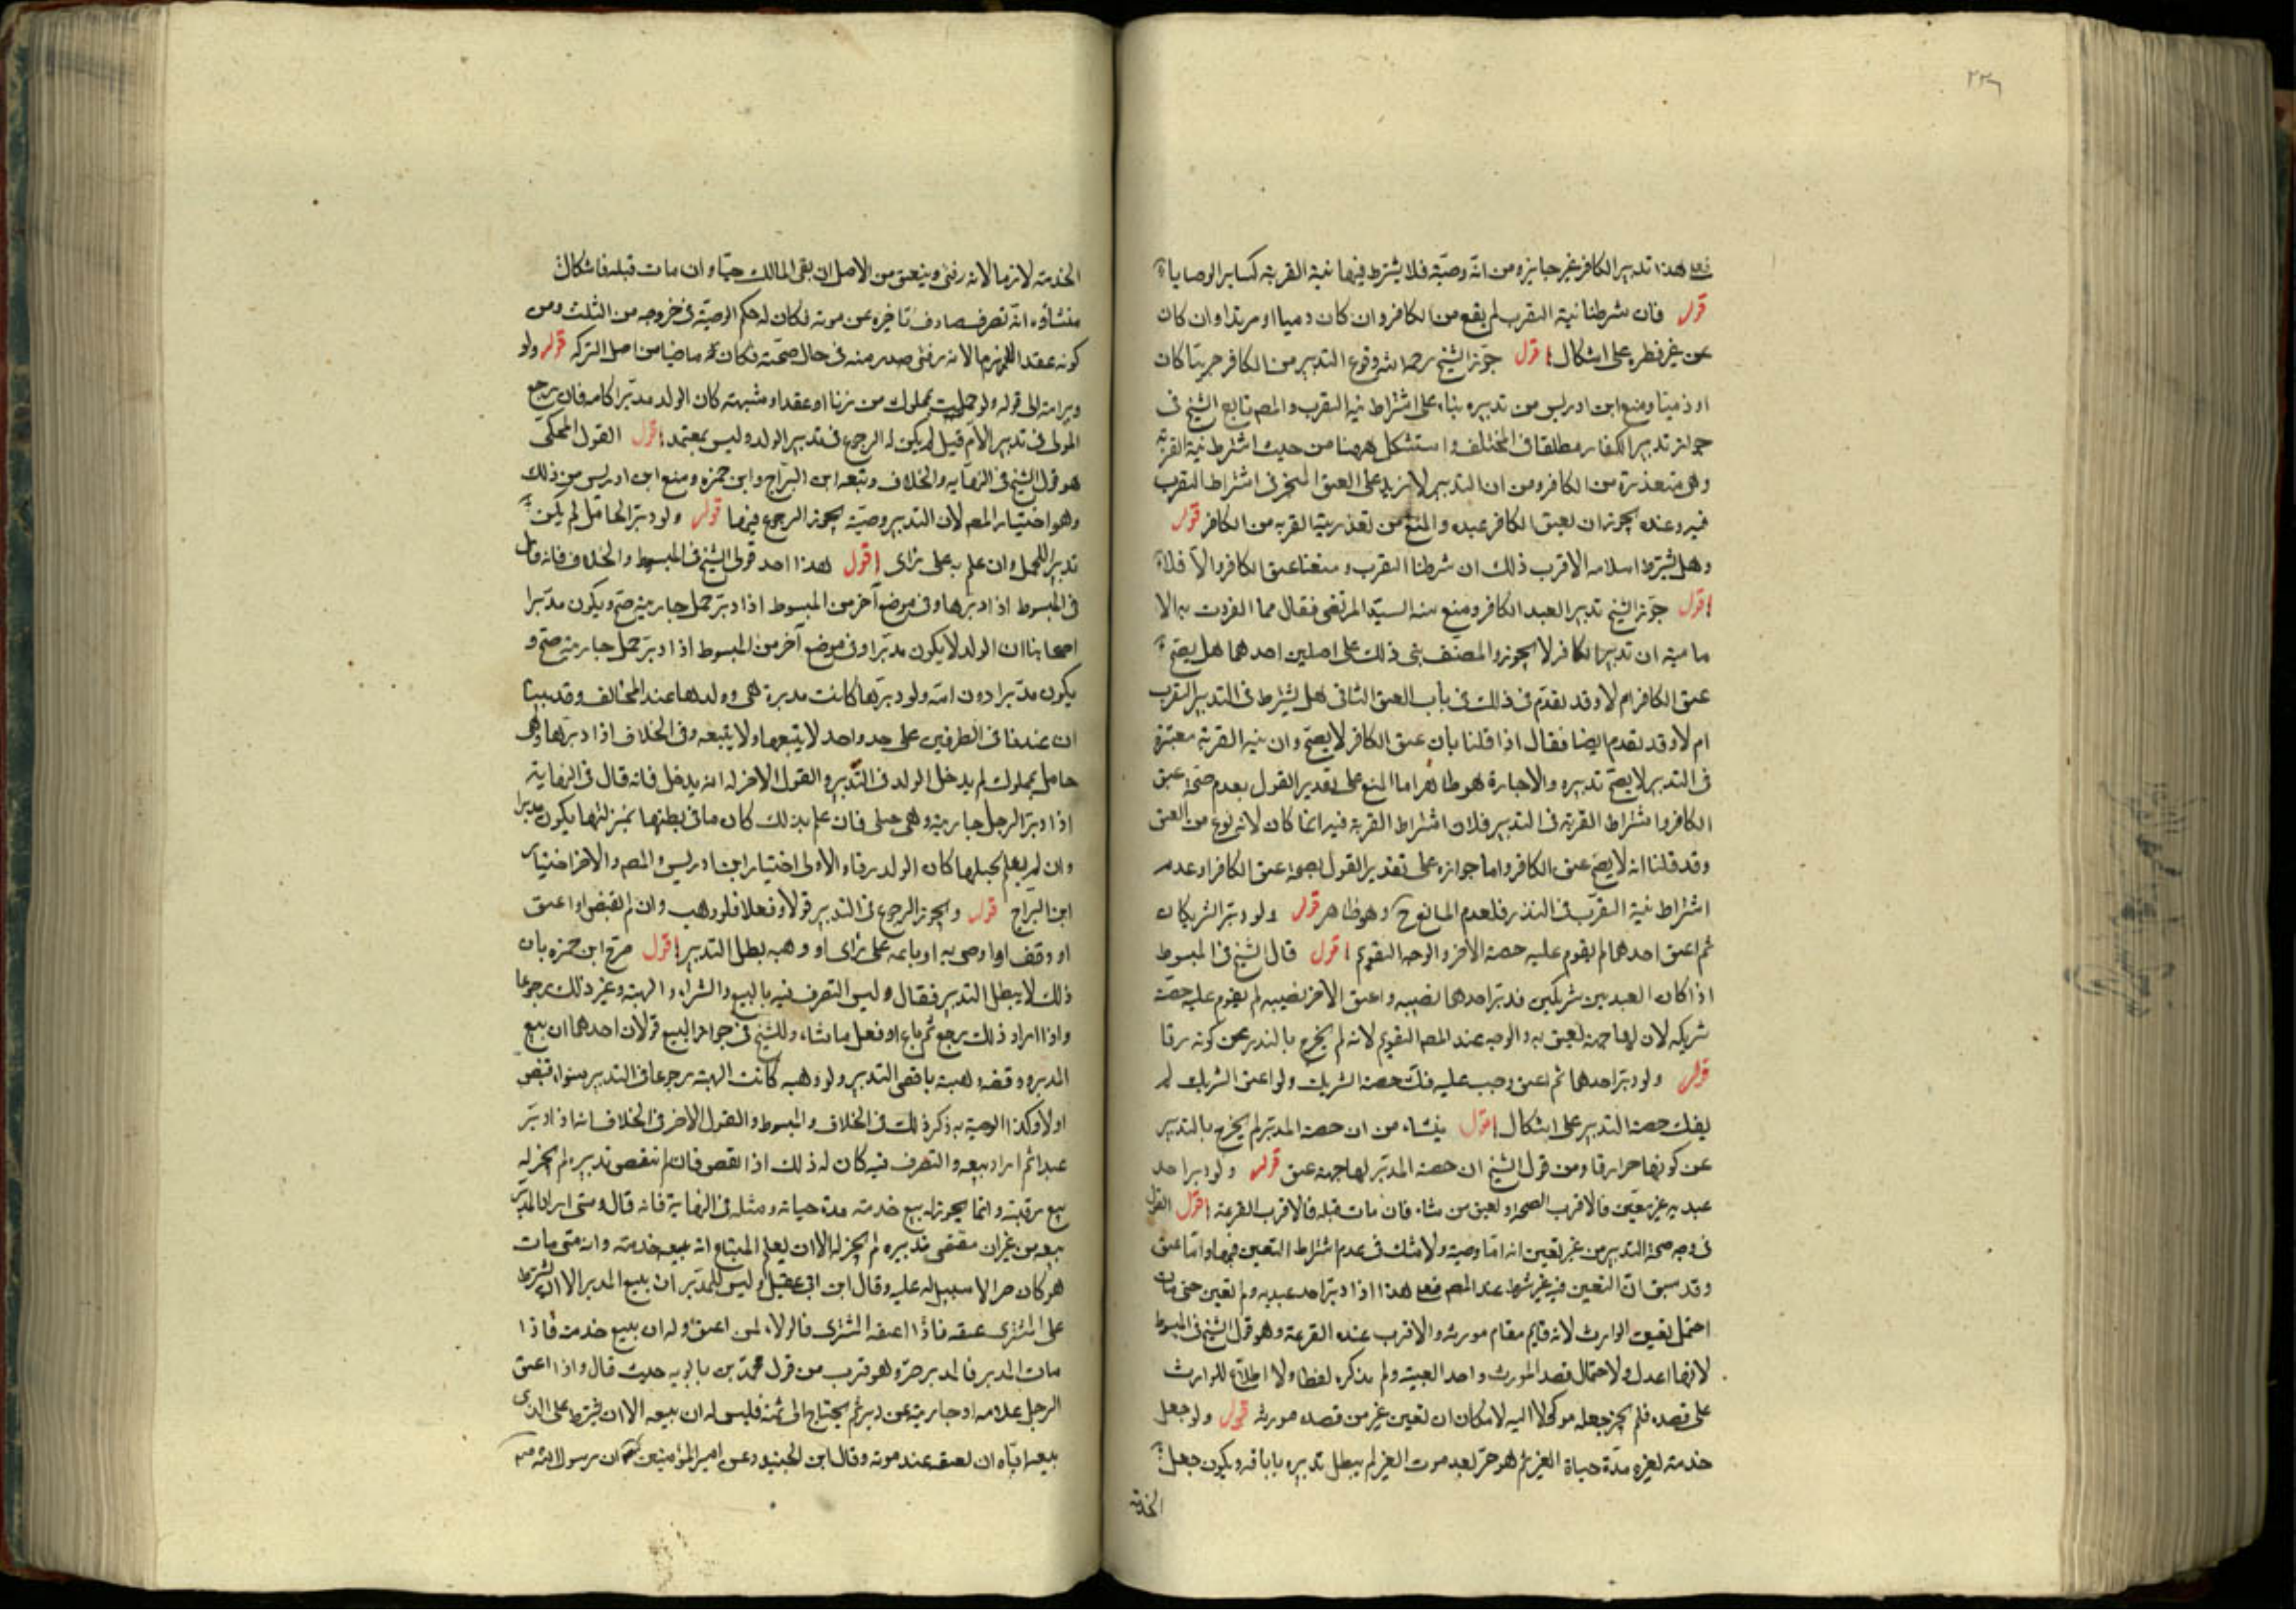 ٢٢٦
فعلى هذا تدبير الكافر غير جايز ومن انه وصية فلا يشترط فيها نية القربة كساير الوصايا
قوله فان شرطنا نية التقرب لم يقع من الكافر وان كان ذميا او مرتدا وان كان
عن غير فطرة على اشكال اقول جوز الشيخ رحمه الله وقوع التدبير من الكافر حربيا كان
او ذميا ومنع ابن ادريس من تدبيره بناء على اشتراط نية التقرب والمصم تابع الشيخ في
جواز تدبير الكفار مطلقا في المختلف واستشكل ههنا من حيث اشتراط نية القربة
وهي متعذرة من الكافر ومن ان التدبير لا يزيد على العتق المنجز في اشتراط التقرب
فيه وعنده يجوز ان يعتق الكافر عبده والمنع من تعذر نية القربة من الكافر قوله
وهل يشترط اسلامه الاقرب ذلك ان شرطنا التقرب ومنعنا عتق الكافر والا فلا
اقول جوز الشيخ تدبير العبد الكافر ومنع منه السيد المرتضى فقال مما انفردت به الا
مامية ان تدبير الكافر لا يجوز والمصنف بنى ذلك على اصلين احدهما هل يصح
عتق الكافر ام لا وقد تقدم في ذلك في باب العتق الثاني هل يشترط في التدبير التقرب
ام لا وقد تقدم ايضا فقال اذا قلنا بان عتق الكافر لا يصح وان نية القربة معتبرة
في التدبير لا يصح تدبيره والا جاز وهو ظاهر اما المنع على تقدير القول بعدم صحة عتق
الكافر واشتراط القربة في التدبير فلان اشتراط القربة فيه انما كان لانه نوع من العتق
وقد قلنا انه لا يصح عتق الكافر واما جوازه على تقدير القول بصحة عتق الكافر او عدم
اشتراط نية التقرب في النذر فلعدم المانع ح وهو ظاهر قوله ولو دبر الشريكان
ثم اعتق احدهما لم يقوم عليه حصة الاخر والوجه التقويم اقول قال الشيخ في المبسوط
اذا كان العبد بين شريكين فدبر احدهما نصيبه واعتق الاخر نصيبه لم يقوم عليه حصة
شريكه لان لها جهة يعتق به والوجه عند المصم التقويم لانه لم يخرج بالتدبير عن كونه رقا
قوله ولو دبر احدهما ثم اعتق وجب عليه فك حصة الشريك ولو اعتق الشريك لم
يفك حصة التدبير على اشكال اقول ينشاء من ان حصة المدبر لم يخرج بالتدبير
عن كونها حرا رقا ومن قول الشيخ ان حصة المدبر لها جهة عتق قوله ولو دبر احد
عبديه غير معين فالاقرب الصحة ويعين من شاء فان مات قبله فالاقرب القرعة اقول القول
في وجه صحة التدبير من غير تعيين انه اما وصية ولا شك في عدم اشتراط التعيين فيها واما عتق
وقد سبق ان التعيين فيه غير شرط عند المصم فعلى هذا اذا دبر احد عبديه ولم يعين حتى مات
احتمل تعيين الوارث لانه قايم مقام مورثه والاقرب عنده القرعة وهو قول الشيخ في المبسوط
لانها اعدل ولاحتمال قصد المورث واحد العينة ولم يذكره لفظا ولا اطلاع للوارث
على قصده فلم يجز جعله موكولا اليه لامكان ان يعين غير من قصده مورثه قوله ولو جعل
خدمته لغيره مدة حياة الغير ثم هو حر بعد موت الغير لم يبطل تدبيره باباقه ويكون جعل
الخدمة
الخدمة لازما لانه رقبى وينعتق من الاصل ان بقى المالك حيا وان مات قبله فاشكال
منشاؤه انه تصرف صادف تاخره عن موته لكان له حكم الوصية في خروجه من الثلث ومن
كونه عقد اللازم لانه رقبى صدر منه في حال صحته فكان ماضيا من اصل التركة قوله ولو
دبر امته الى قوله ولو حملت بمملوك من زنا او عقد او شبهة كان الولد مدبرا كامه فان رجع
المولى في تدبير الام قيل لم يكن له الرجوع في تدبير الولد وليس بمعتمد اقول القول المحكى
هو قول الشيخ في النهاية والخلاف وتبعه ابن البراج وابن حمزة ومنع ابن ادريس من ذلك
وهو اختيار المصم لان التدبير وصية يجوز الرجوع فيها قوله ولو دبر الحامل لم يكن
تدبيرا للحمل وان علم به على رأى اقول هذا احد قولى الشيخ في المبسوط والخلاف فانه قال
في المبسوط اذا دبرها وفي موضع آخر من المبسوط اذا دبر حمل جارية صح ويكون مدبرا
اصحابنا ان الولد لا يكون مدبرا وفي موضع آخر من المبسوط اذا دبر حمل جارية صح و
يكون مدبرا دون امه ولو دبرها كانت مدبرة هي وولدها عند المخالف وقد بينا
ان عندنا في الطرفين على حد واحد لا يتبعها ولا يتبعه وفي الخلاف اذا دبرها وهي
حامل بمملوك لم يدخل الولد في التدبير والقول الاخر له انه يدخل فانه قال في النهاية
اذا دبر الرجل جارية وهي حبلى فان علم بذلك كان ما في بطنها بمنزلتها يكون مدبرا
وان لم يعلم بحبلها كان الولد رقا والاولى اختيار ابن ادريس والمصم والاخر اختيار
ابن البراج قوله ويجوز الرجوع في التدبير قولا وفعلا فلو وهب وان لم يقبض او اعتق
او وقف او اوصى به او باعه على رأى او وهبه بطل التدبير اقول صرح ابن حمزة بان
ذلك لا يبطل التدبير فقال وليس التصرف فيه بالبيع والشراء والهبة وغير ذلك رجوعا
واذا اراد ذلك رجع ثم باع او فعل ما شاء وللشيخ في جواز البيع قولان احدهما ان بيع
المدبر ووقفه وهبته ناقض التدبير ولو وهبه كانت الهبة رجوعا في التدبير سواء قبض
اولا وكذا الوصية به ذكره ذلك في الخلاف والمبسوط والقول الاخر في الخلاف انه اذا دبر
عبدا ثم اراد بيعه والتصرف فيه كان له ذلك اذا نقض فان لم ينقض تدبيره لم يجز له
بيع رقبته وانما يجوز له بيع خدمته مدة حياته ومثله في النهاية فانه قال ومتى اراد المدبر
بيعه من غير ان ينقض تدبيره لم يجز له الا ان يعلم المبتاع انه يبيعه خدمته وانه متى مات
هو كان حرا لا سبيل له عليه وقال ابن ابي عقيل وليس للمدبر ان يبيع المدبر الا ان يشترط
على المشترى عتقه فاذا اعتقه المشترى فالولاء لمن اعتق وله ان يبيع خدمته فاذا
مات المدبر فالمدبر حر وهو قريب من قول محمد بن بابويه حيث قال واذا اعتق
الرجل غلامه او جاريته عن دبر ثم يحتاج الى ثمنه فليس له ان يبيعه الا ان يشترط على الذى
يبيعه اياه ان يعتقه عند موته وقال ابن الجنيد وعن امير المؤمنين ان رسول الله